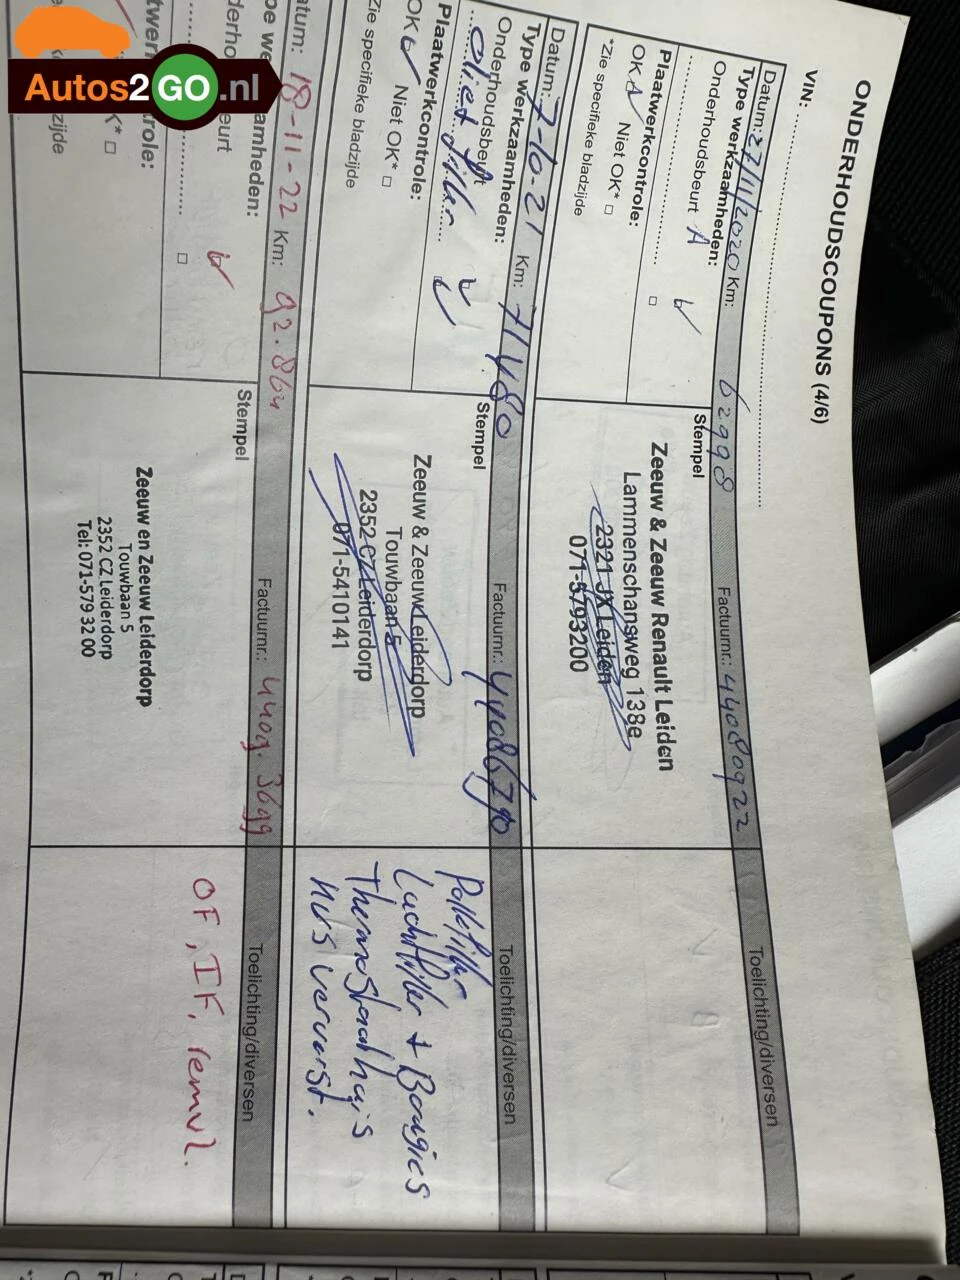 Autos2GO.nl
ONDERHOUDSCOUPONS (4/6)
VIN:
Datum: 27/11/2020 Km: 62998 Factuurnr.: 44080922 Toelichting/diversen
Type werkzaamheden:
Onderhoudsbeurt A
Plaatwerkcontrole:
OK Niet OK*
*Zie specifieke bladzijde
Stempel
Zeeuw & Zeeuw Renault Leiden
Lammenschansweg 138e
2321 JX Leiden
071-5793200
Datum: 7-10-21 Km: 71480 Factuurnr.: 44086790 Toelichting/diversen
Type werkzaamheden:
Onderhoudsbeurt
Plaatwerkcontrole:
OK Niet OK*
*Zie specifieke bladzijde
Stempel
Zeeuw & Zeeuw Leiderdorp
Touwbaan 5
2352 CZ Leiderdorp
071-5410141
Pollefilter
Luchtfilter + Bougies
Thermostaathuis
Datum: 18-11-22 Km: 92.864 Factuurnr.: 4409.3699 Toelichting/diversen
Stempel
Zeeuw en Zeeuw Leiderdorp
Touwbaan 5
2352 CZ Leiderdorp
Tel: 071-579 32 00
OF, IF, remvl.